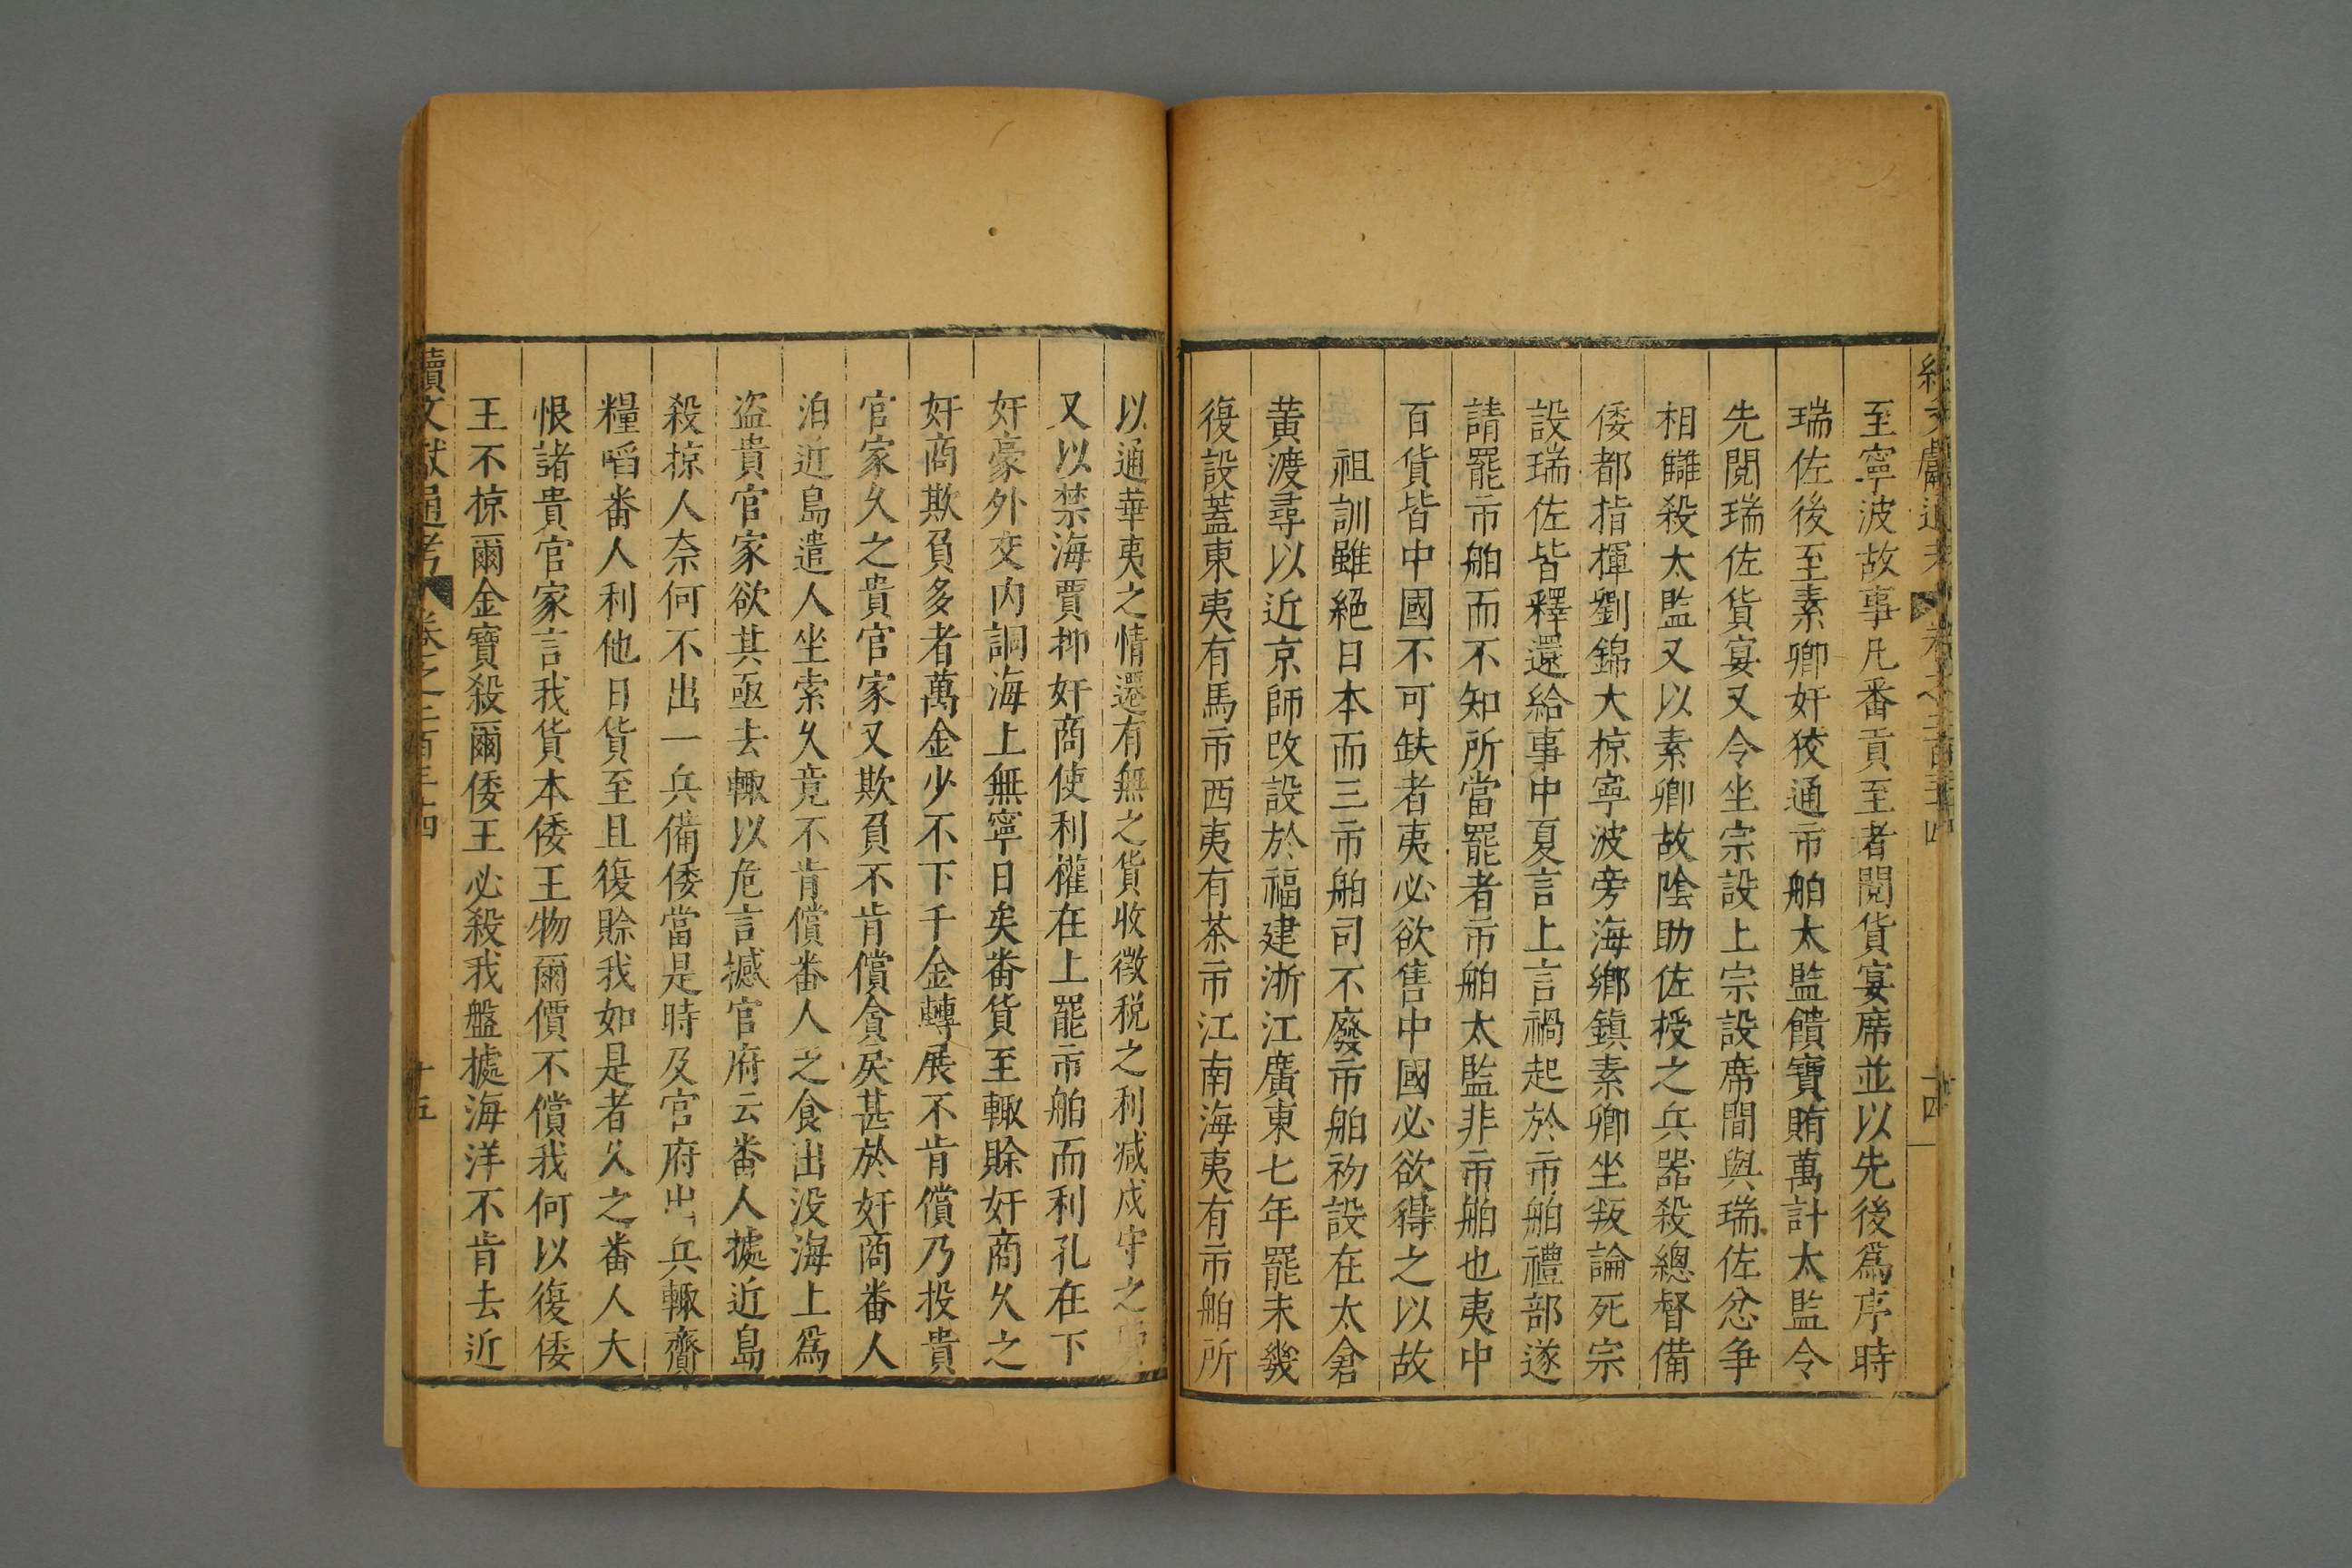 至寧波故事凡番貢至者閱貨宴席並以先後爲序時
瑞佐後至素卿奸狡通市舶太監饋寶賄萬計太監令
先閱瑞佐貨宴又令坐宗設上宗設席間與瑞佐忿争
相讎殺太監又以素卿故陰助佐授之兵器殺總督備
倭都指揮劉錦大掠寧波旁海鄉鎮素卿坐叛論死宗
設瑞佐皆釋還給事中夏言上言禍起於市舶禮部遂
請罷市舶而不知所當罷者市舶太監非市舶也夷中
百貨皆中國不可缺者夷必欲售中國必欲得之以故
祖訓雖絕日本而三市舶司不廢市舶初設在太倉
黄渡尋以近京師改設於福建浙江廣東七年罷未幾
復設蓋東夷有馬市西夷有茶市江南海夷有市舶所
以通華夷之情還有無之貨收徵税之利减戍守之
又以禁海賈抑奸商使利權在上罷市舶而利孔在下
奸豪外交内詗海上無寧日矣番貨至輙賒奸商久之
奸商欺負多者萬金少不下千金轉展不肯償乃投貴
官家久之貴官家又欺負不肯償貪戾甚於奸商番人
泊近島遣人坐索久竟不肯償番人乏食出没海上爲
盗貴官家欲其亟去輙以危言撼官府云番人據近島
殺掠人奈何不出一兵備倭當是時及官府出兵輙齎
糧啗番人利他日貨至且復賒我如是者久之番人大
恨諸貴官家言我貨本倭王物爾價不償我何以復倭
王不掠爾金寶殺爾倭王必殺我盤據海洋不肯去近
續文獻通考 卷之二百三十四 十五